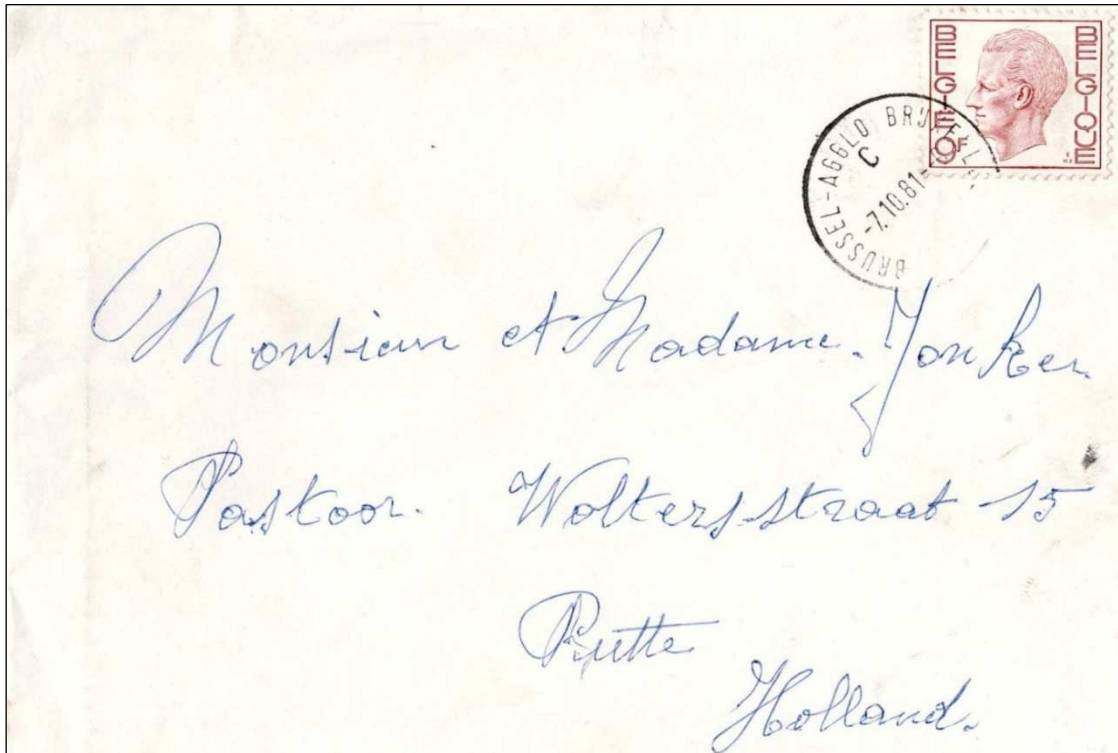 BELGIË BELGIQUE
9F
BRUSSEL-AGGLO BRUXELLES
C
-7.10.81-
Monsieur et Madame. Jonker.
Pastoor. Woltersstraat 15
Putte
Holland.